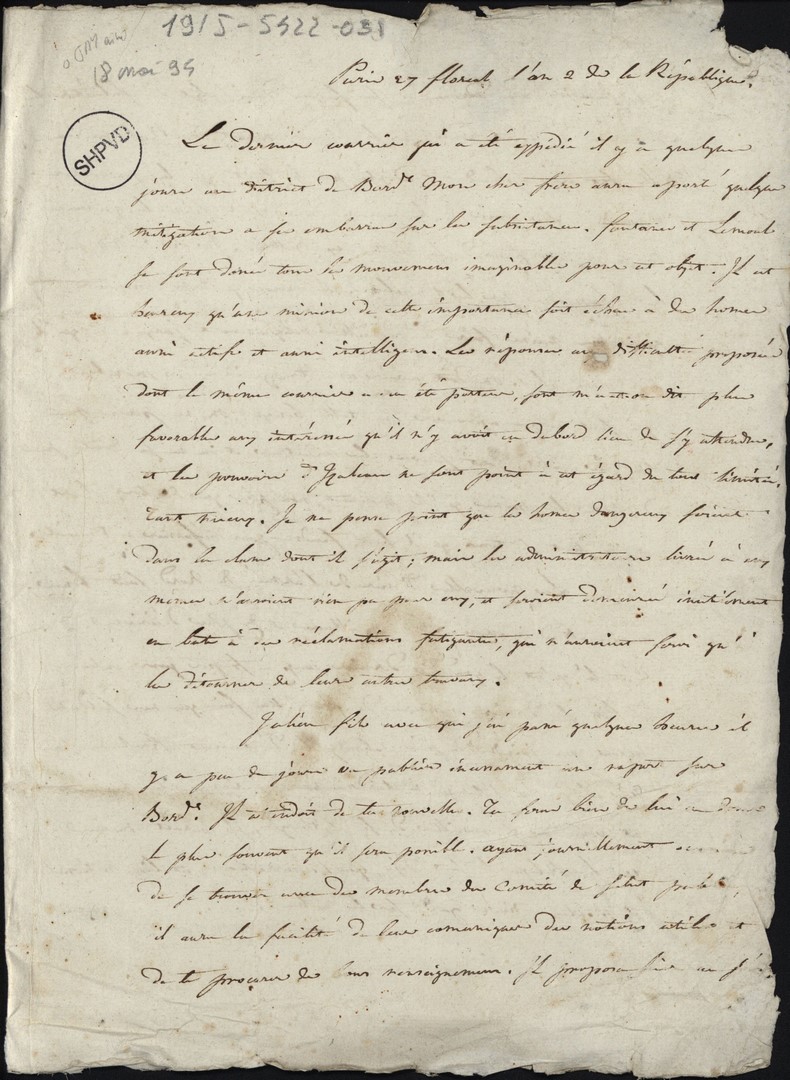 1915-5422-031
18 mai 94
SHPVD
Paris 27 floreal l'an 2 de la République.
Le dernier courrier qui a été expédié il y a quelques
jours au district de Bord.x Mon cher frere aura aporté quelque
mitigation a ses embarras sur les subsistances. fontaine et
se sont donés tous les mouvemens imaginables pour cet objet. Il est
heureux qu'une mission de cette importance soit échue à des homes
aussi actifs et aussi intelligens. Les réponses aux difficultés proposées
dont le même courrier a été porteur, sont m'a-t-on dit plus
favorables aux intéressés qu'il n'y avoit eu d'abord lieu de s'y attendre,
et les pouvoirs d'Ysabeau ne sont point à cet égard du tout limités.
Tant mieux. Je ne pense point que les homes dangereux soient
dans la classe dont il s'agit; mais les administrateurs livrés à eux
memes n'auroient rien pu pour eux, et seroient demeurés inutilement
en bute à des réclamations fatigantes, qui n'auroient servi qu'à
les détourner de leurs autres travaux.
Julien fils avec qui j'ai passé quelques heures il
y a peu de jours va publier incessament un raport sur
Bord.x Il attendoit de tes nouvelles. Tu feras bien de lui en donner
le plus souvent qu'il sera possible. ayant journellement
de se trouver avec des membres du Comité de salut public,
il aura la facilité de leur comuniquer des notions utiles et
de te procurer de bons renseignemens. Il